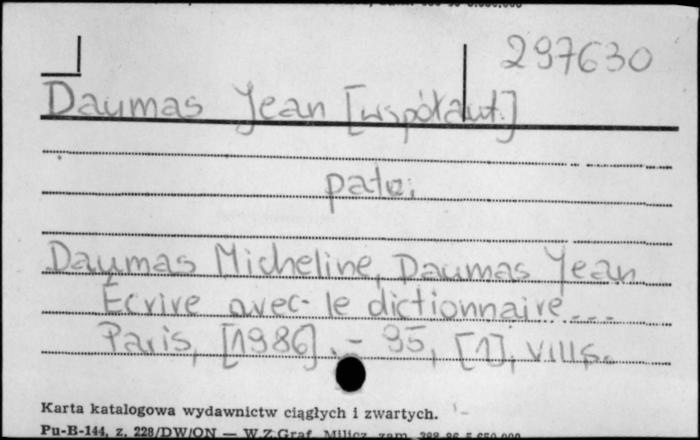 297630
Daumas Jean [współaut.]
patrz:
Daumas Micheline, Daumas Jean
Ecrire avec le dictionnaire...
Paris, [1986]. - 95, [1], VIII s.
Karta katalogowa wydawnictw ciągłych i zwartych.
Pu-B-144, z. 228/DW/ON — W.Z.Graf. Milicz, zam.